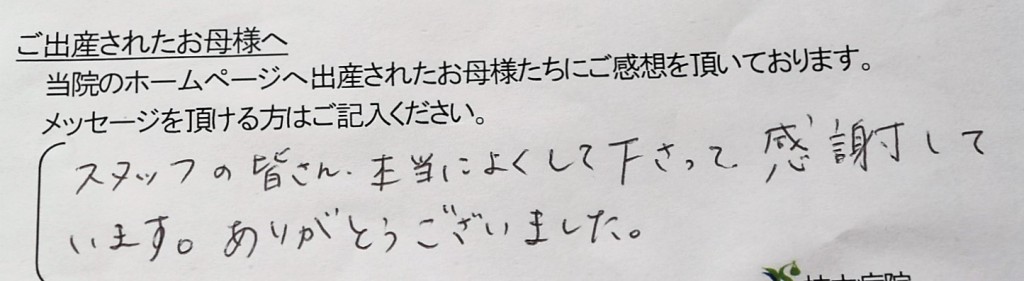 ご出産されたお母様へ
当院のホームページへ出産されたお母様たちにご感想を頂いております。
メッセージを頂ける方はご記入ください。
スタッフの皆さん、本当によくして下さって感謝して
います。ありがとうございました。
病院